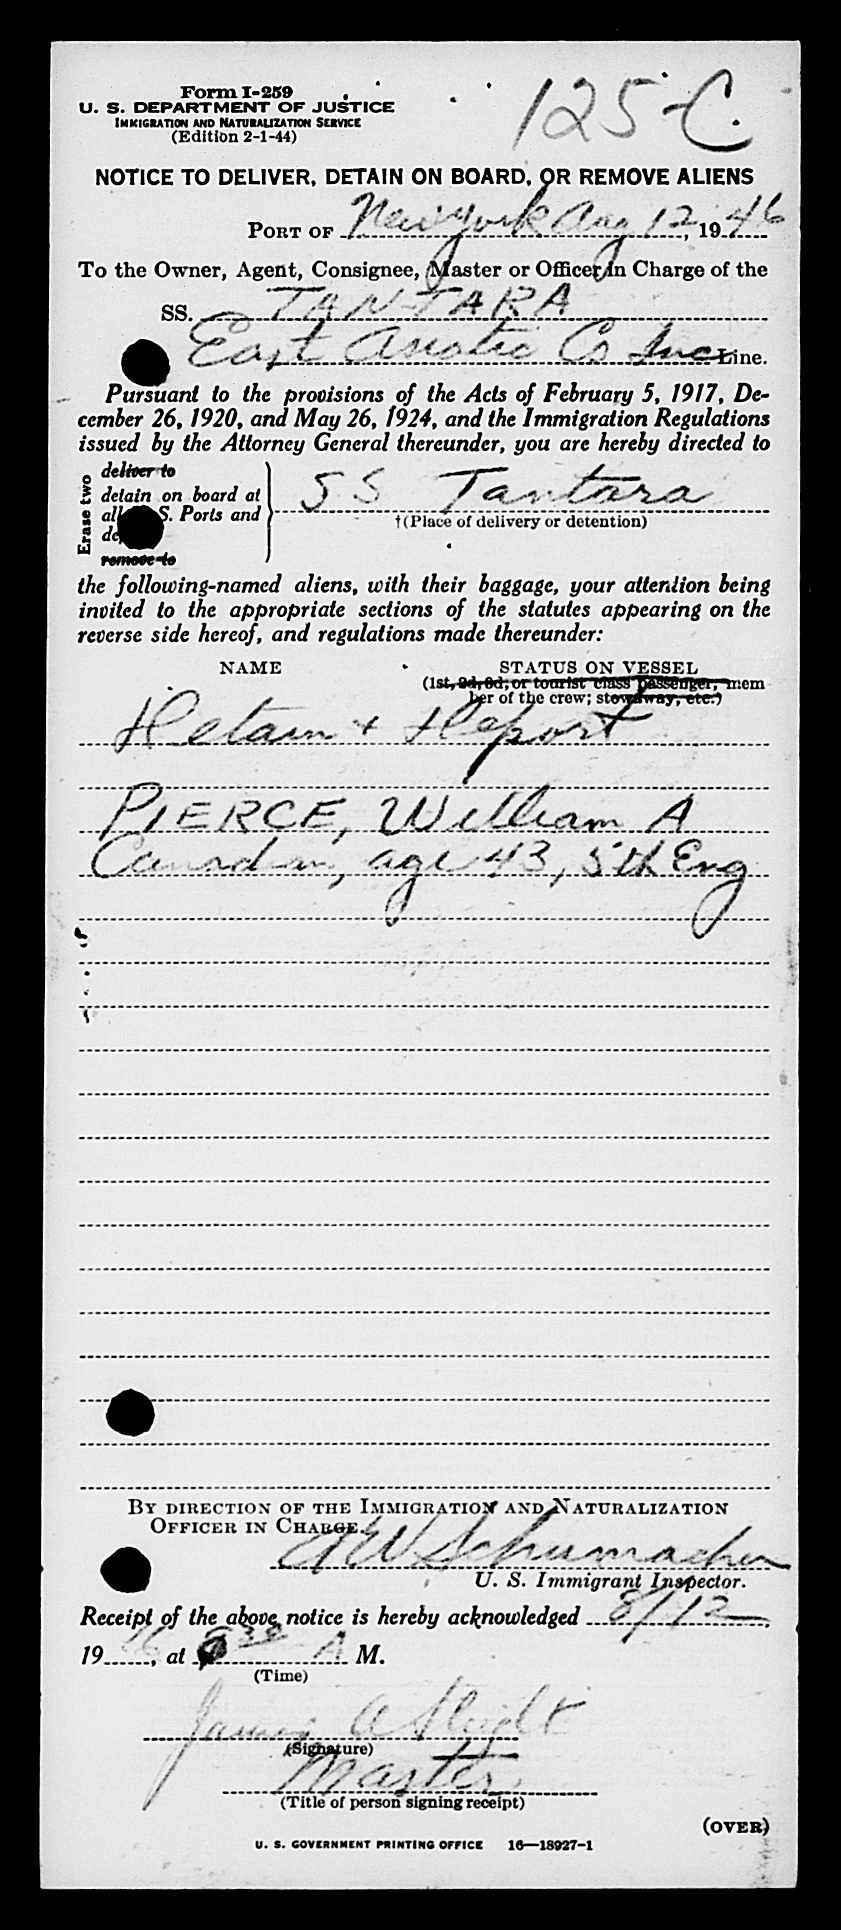 Form I-259
U. S. DEPARTMENT OF JUSTICE
IMMIGRATION AND NATURALIZATION SERVICE
(Edition 2-1-44)
125-C
NOTICE TO DELIVER, DETAIN ON BOARD, OR REMOVE ALIENS
PORT OF New York Aug 12, 1946
To the Owner, Agent, Consignee, Master or Officer in Charge of the
SS. TANTARA
East Asiatic Co Inc Line.
Pursuant to the provisions of the Acts of February 5, 1917, De-
cember 26, 1920, and May 26, 1924, and the Immigration Regulations
issued by the Attorney General thereunder, you are hereby directed to
Erase two
deliver to
detain on board at
all U. S. Ports and
remove to
SS Tantara
†(Place of delivery or detention)
the following-named aliens, with their baggage, your attention being
invited to the appropriate sections of the statutes appearing on the
reverse side hereof, and regulations made thereunder:
NAME STATUS ON VESSEL
(1st, 2d, 3d, or tourist class passenger, mem
ber of the crew; stowaway, etc.)
Detain + Report
PIERCE, William A
Canadian, age 43, 5th Eng
BY DIRECTION OF THE IMMIGRATION AND NATURALIZATION
OFFICER IN CHARGE.
Schumacher
U. S. Immigrant Inspector.
Receipt of the above notice is hereby acknowledged 8/12,
1946, at 30 A M.
(Time)
James A
(Signature)
Master
(Title of person signing receipt)
(OVER)
U. S. GOVERNMENT PRINTING OFFICE 16—18927-1